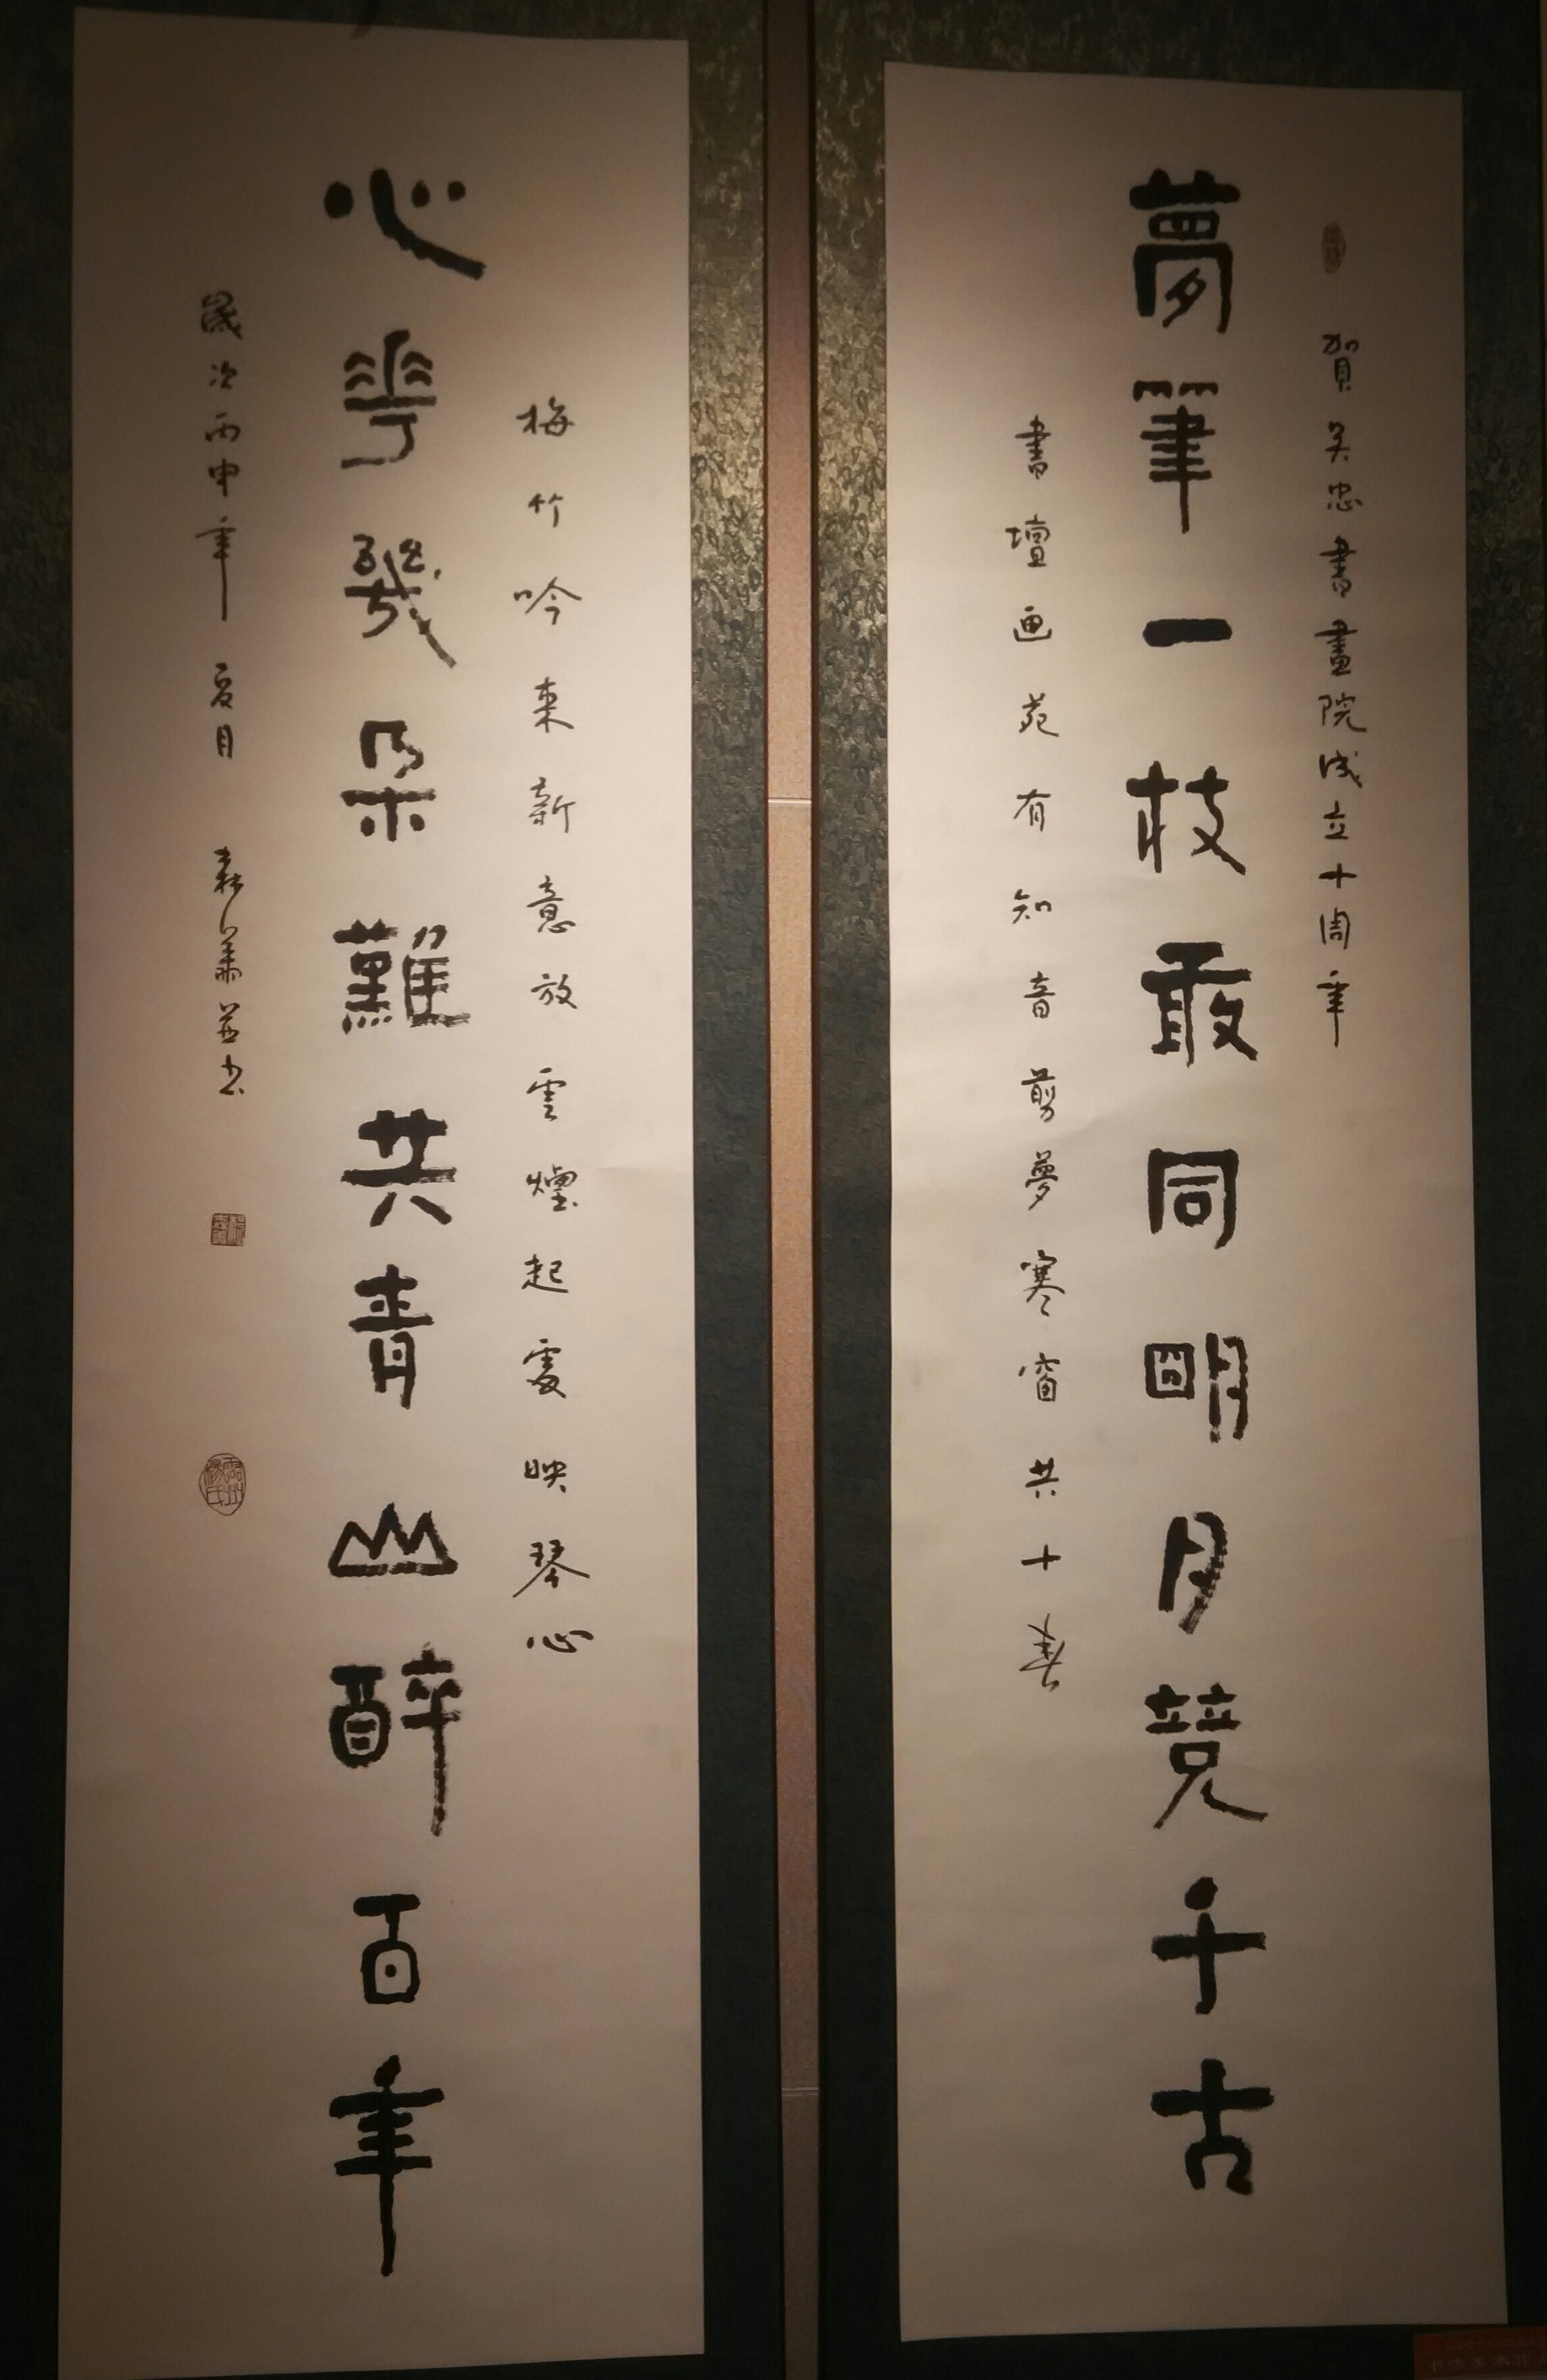 賀吴忠書畫院成立十周年
夢筆一枝敢同明月競千古
書壇画苑有知音剪夢寒窗共十春
梅竹吟来新意放雲煙起處映琴心
心華幾朵難共青山醉百年
歲次丙申年夏月森華並书